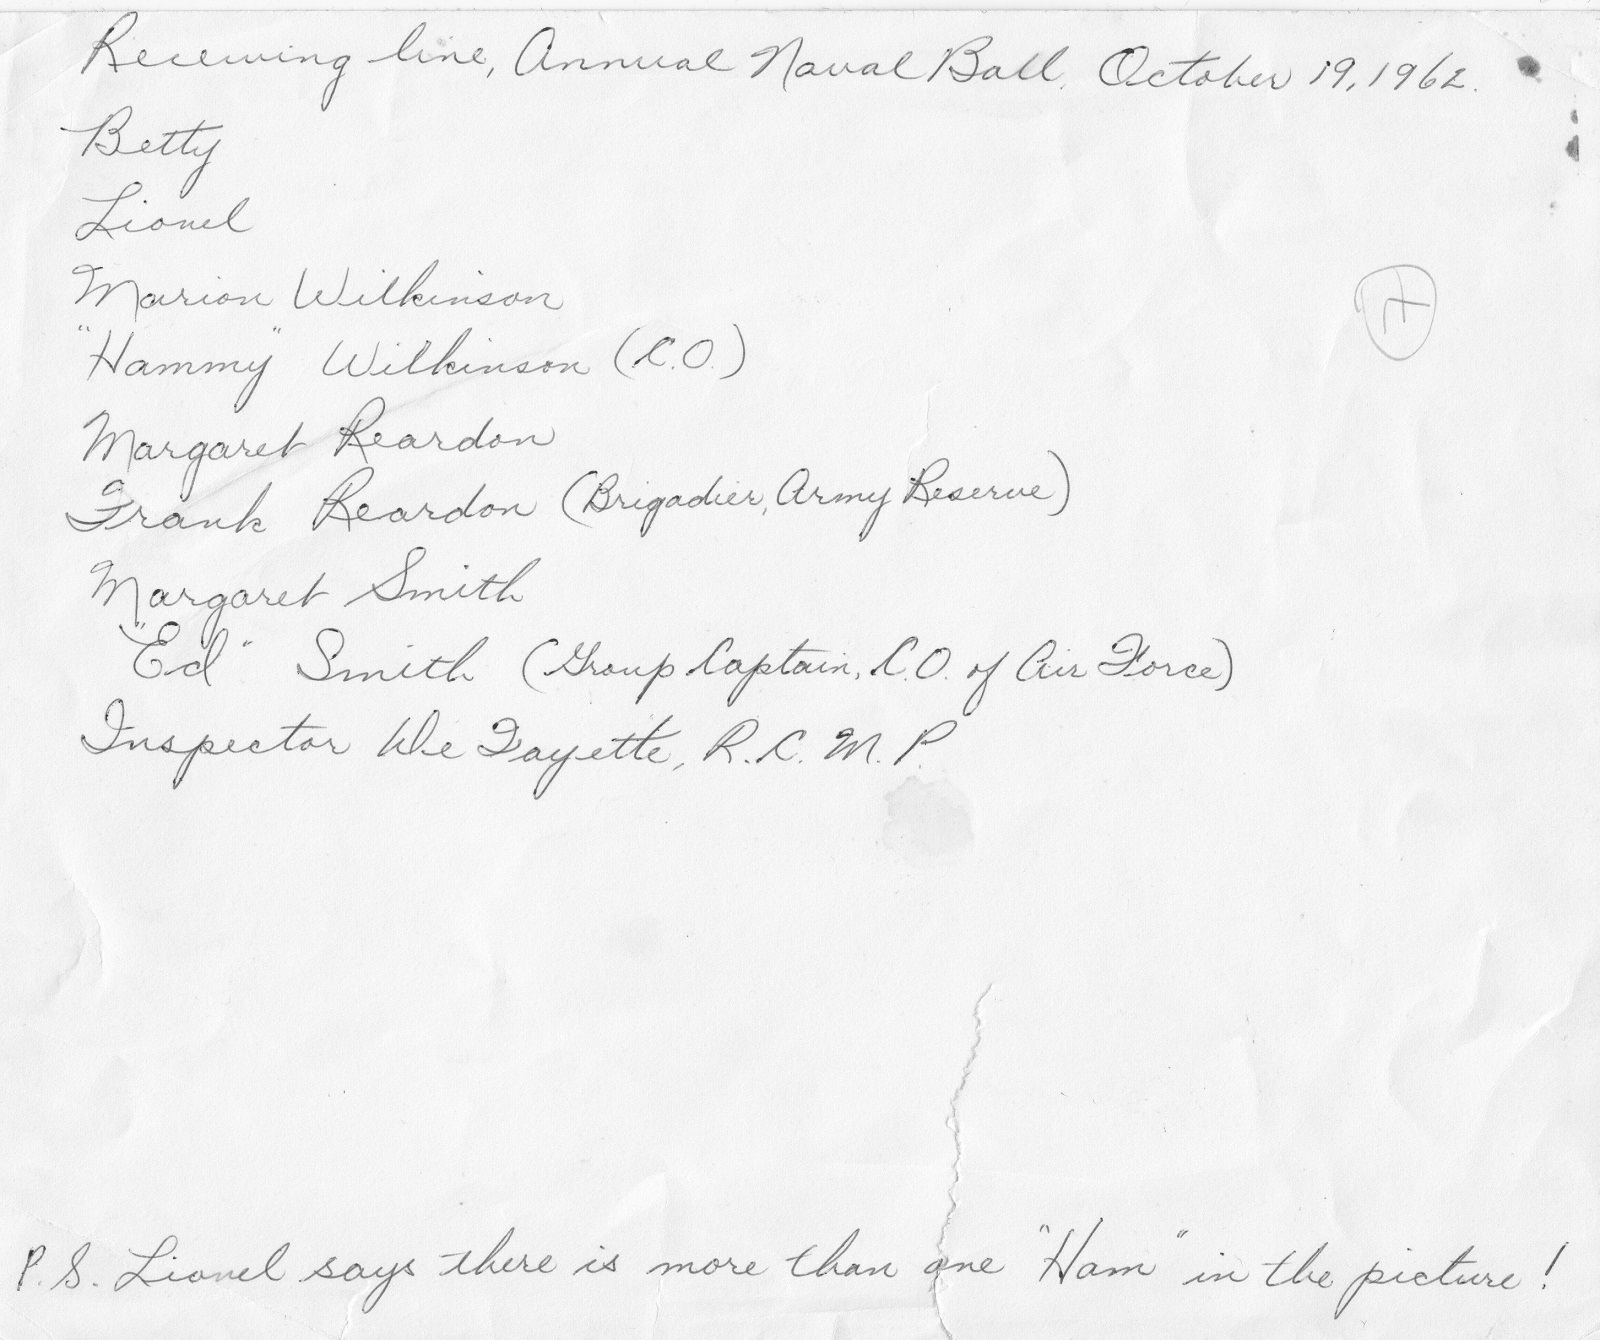 Receiving line, Annual Naval Ball, October 19, 1962.
Betty
Lionel
Marion Wilkinson
"Hammy" Wilkinson (C.O.)
Margaret Reardon
Frank Reardon (Brigadier, Army Reserve)
Margaret Smith
"Ed" Smith (Group Captain, C.O. of Air Force)
Inspector De Fayette, R.C.M.P.
P.S. Lionel says there is more than one "Ham" in the picture!